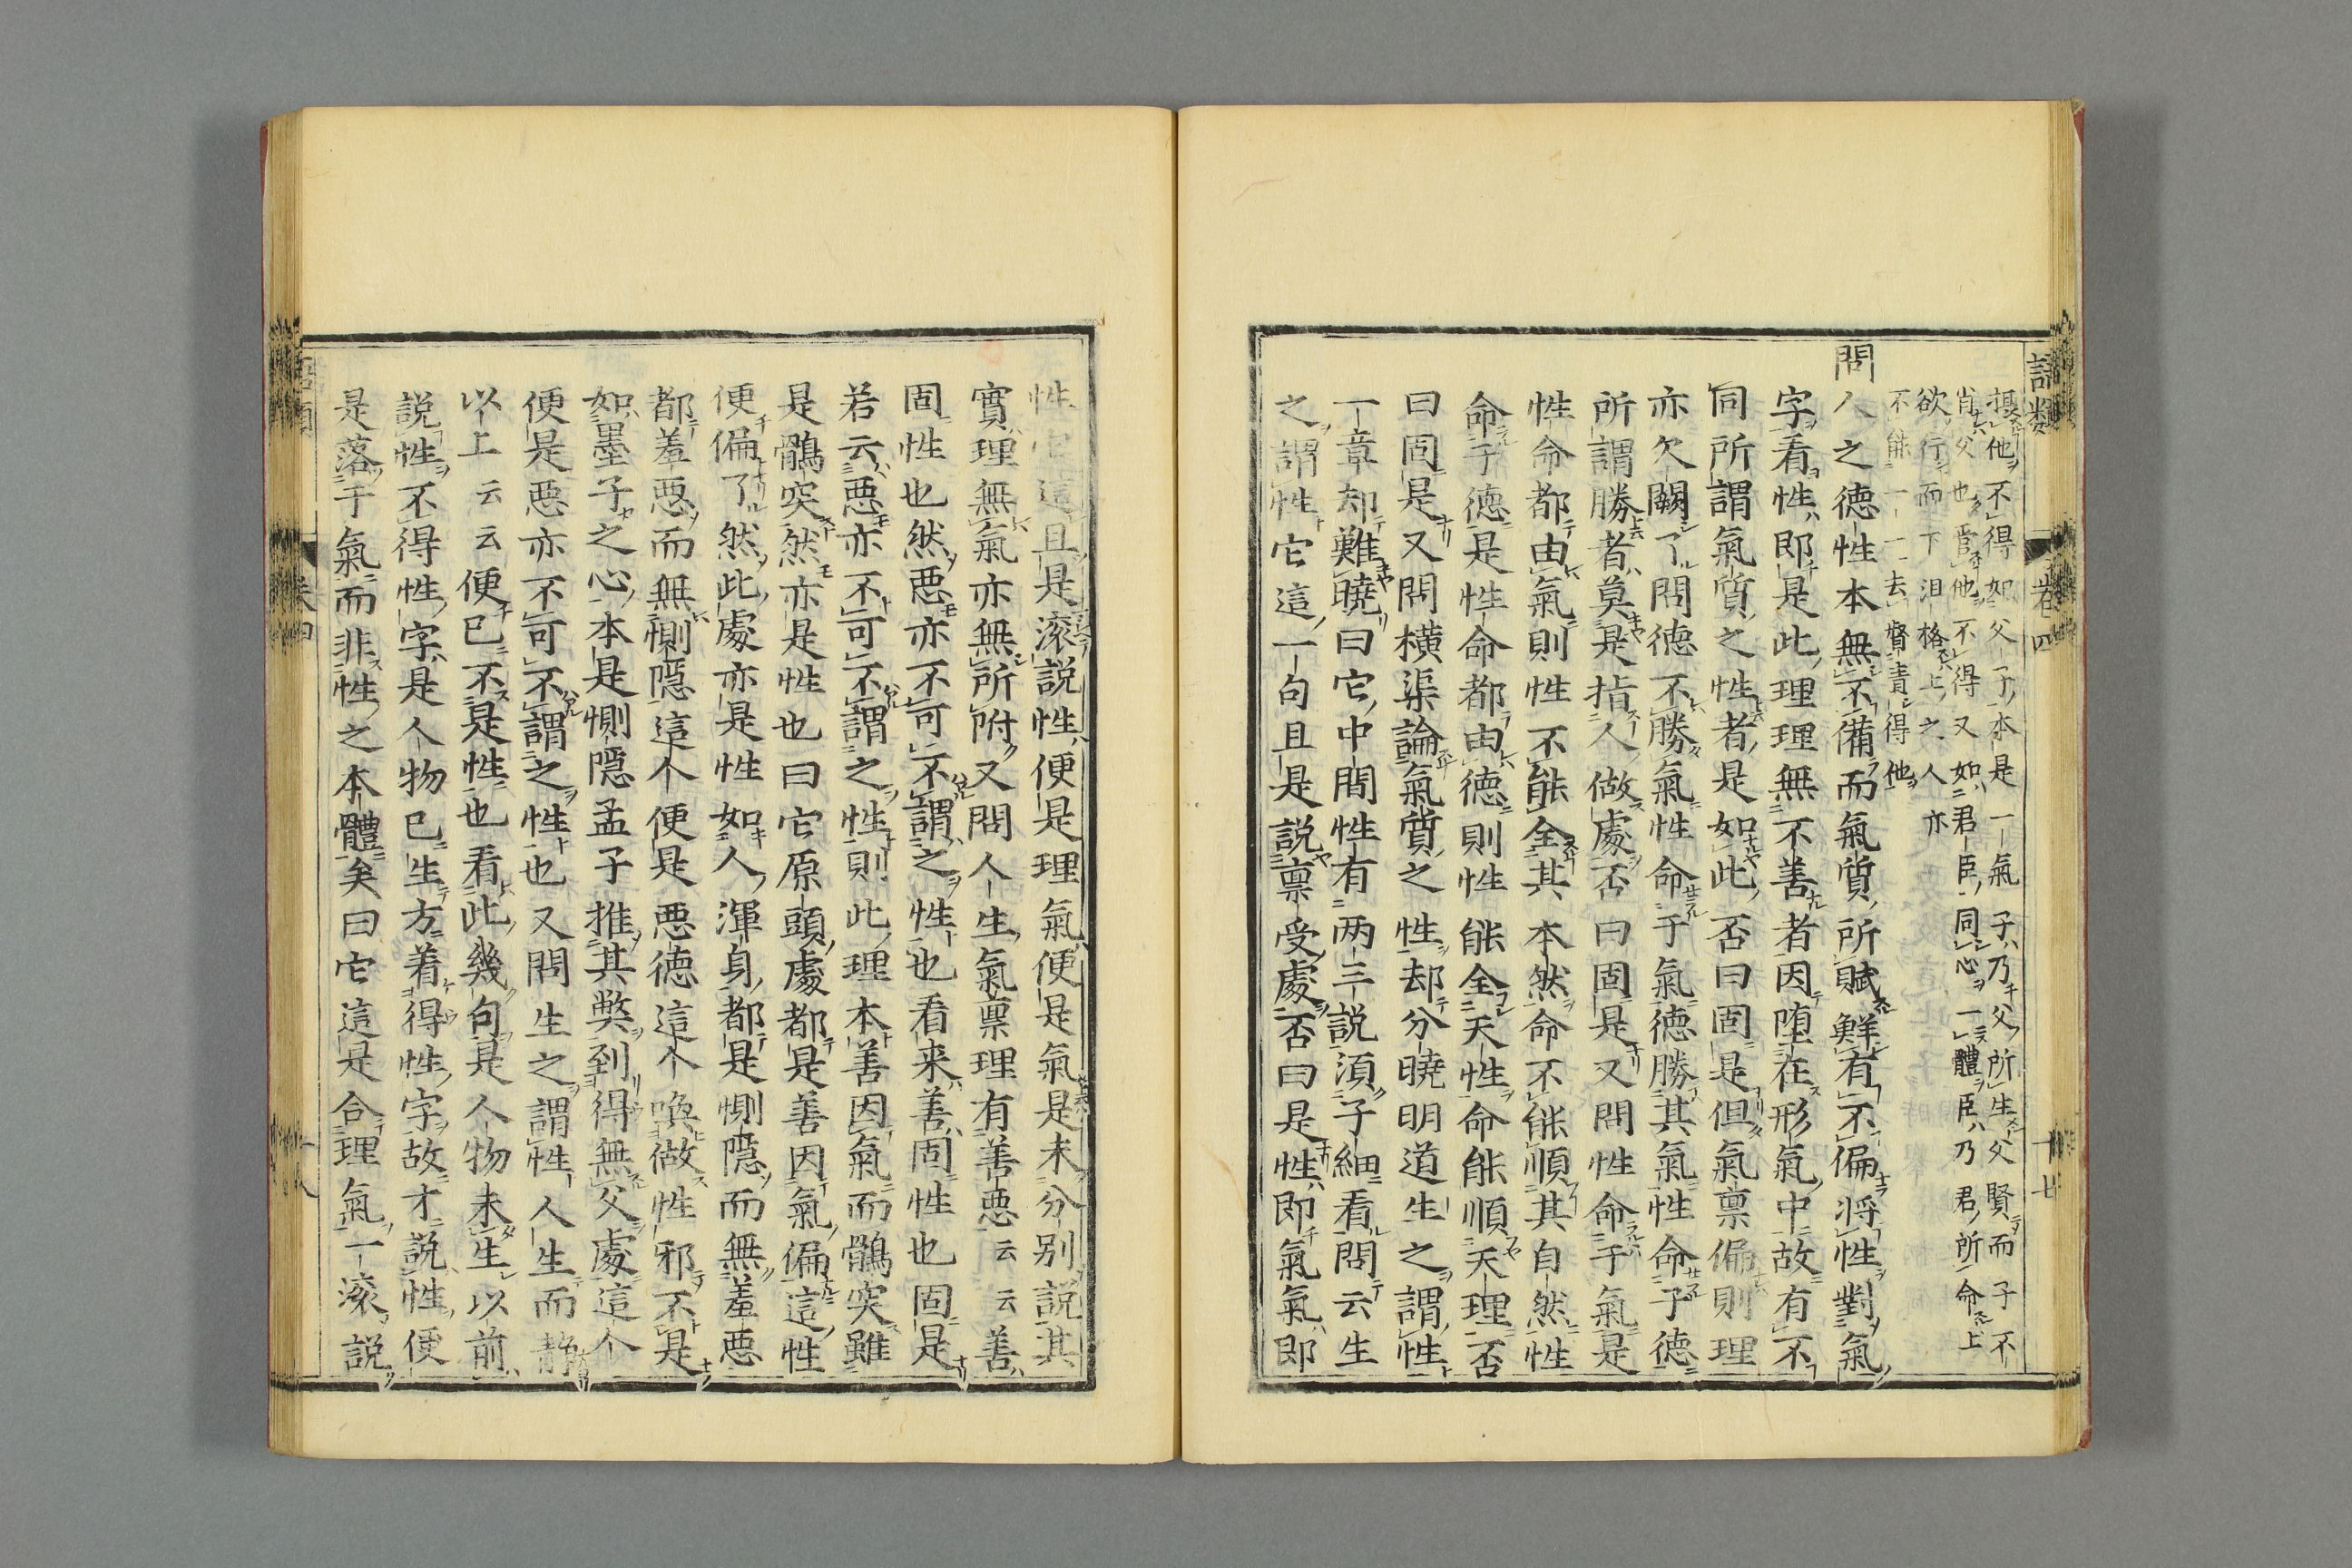 語類 卷四 十七
攝他不得如父子本是一氣子乃父所生父賢而子不
肖父也管他不得又如君臣同心一體臣乃君所命上
欲行而下沮格上之人亦
不能一一去督責得他
問人之德性本無不備而氣質所賦鮮有不偏將性對氣
字看性即是此理理無不善者因墮在形氣中故有不
同所謂氣質之性者是如此否曰固是但氣稟偏則理
亦欠闕了問德不勝氣性命于氣德勝其氣性命于德
所謂勝者莫是指人做處否曰固是又問性命于氣是
性命都由氣則性不能全其本然命不能順其自然性
命于德是性命都由德則性能全天性命能順天理否
曰固是又問橫渠論氣質之性却分曉明道生之謂性
一章却難曉曰它中間性有两三説湏子細看問云生
之謂性它這一句且是説稟受處否曰是性即氣氣即
性它這且是滚説性便是理氣便是氣是未分别説其
實理無氣亦無所附又問人生氣稟理有善惡云云善
固性也然惡亦不可不謂之性也看来善固性也固是
若云惡亦不可不謂之性則此理本善因氣而鶻突雖
是鶻突然亦是性也曰它原頭處都是善因氣偏這性
便偏了然此處亦是性如人渾身都是惻隱而無羞惡
都羞惡而無惻隱這个便是惡德這个喚做性邪不是
如墨子之心本是惻隱孟子推其弊到得無父處這个
便是惡亦不可不謂之性也又問生之謂性人生而静
以上云云便已不是性也看此幾句是人物未生以前
説性不得性字是人物已生方着得性字故才説性便
是落于氣而非性之本體矣曰它這是合理氣一滚説